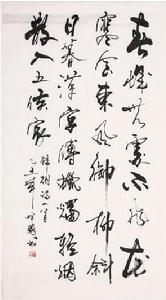 春城無處不飛花
寒食東風御柳斜
日暮漢宮傳蠟燭輕烟
散入五侯家
韓翃詩一首